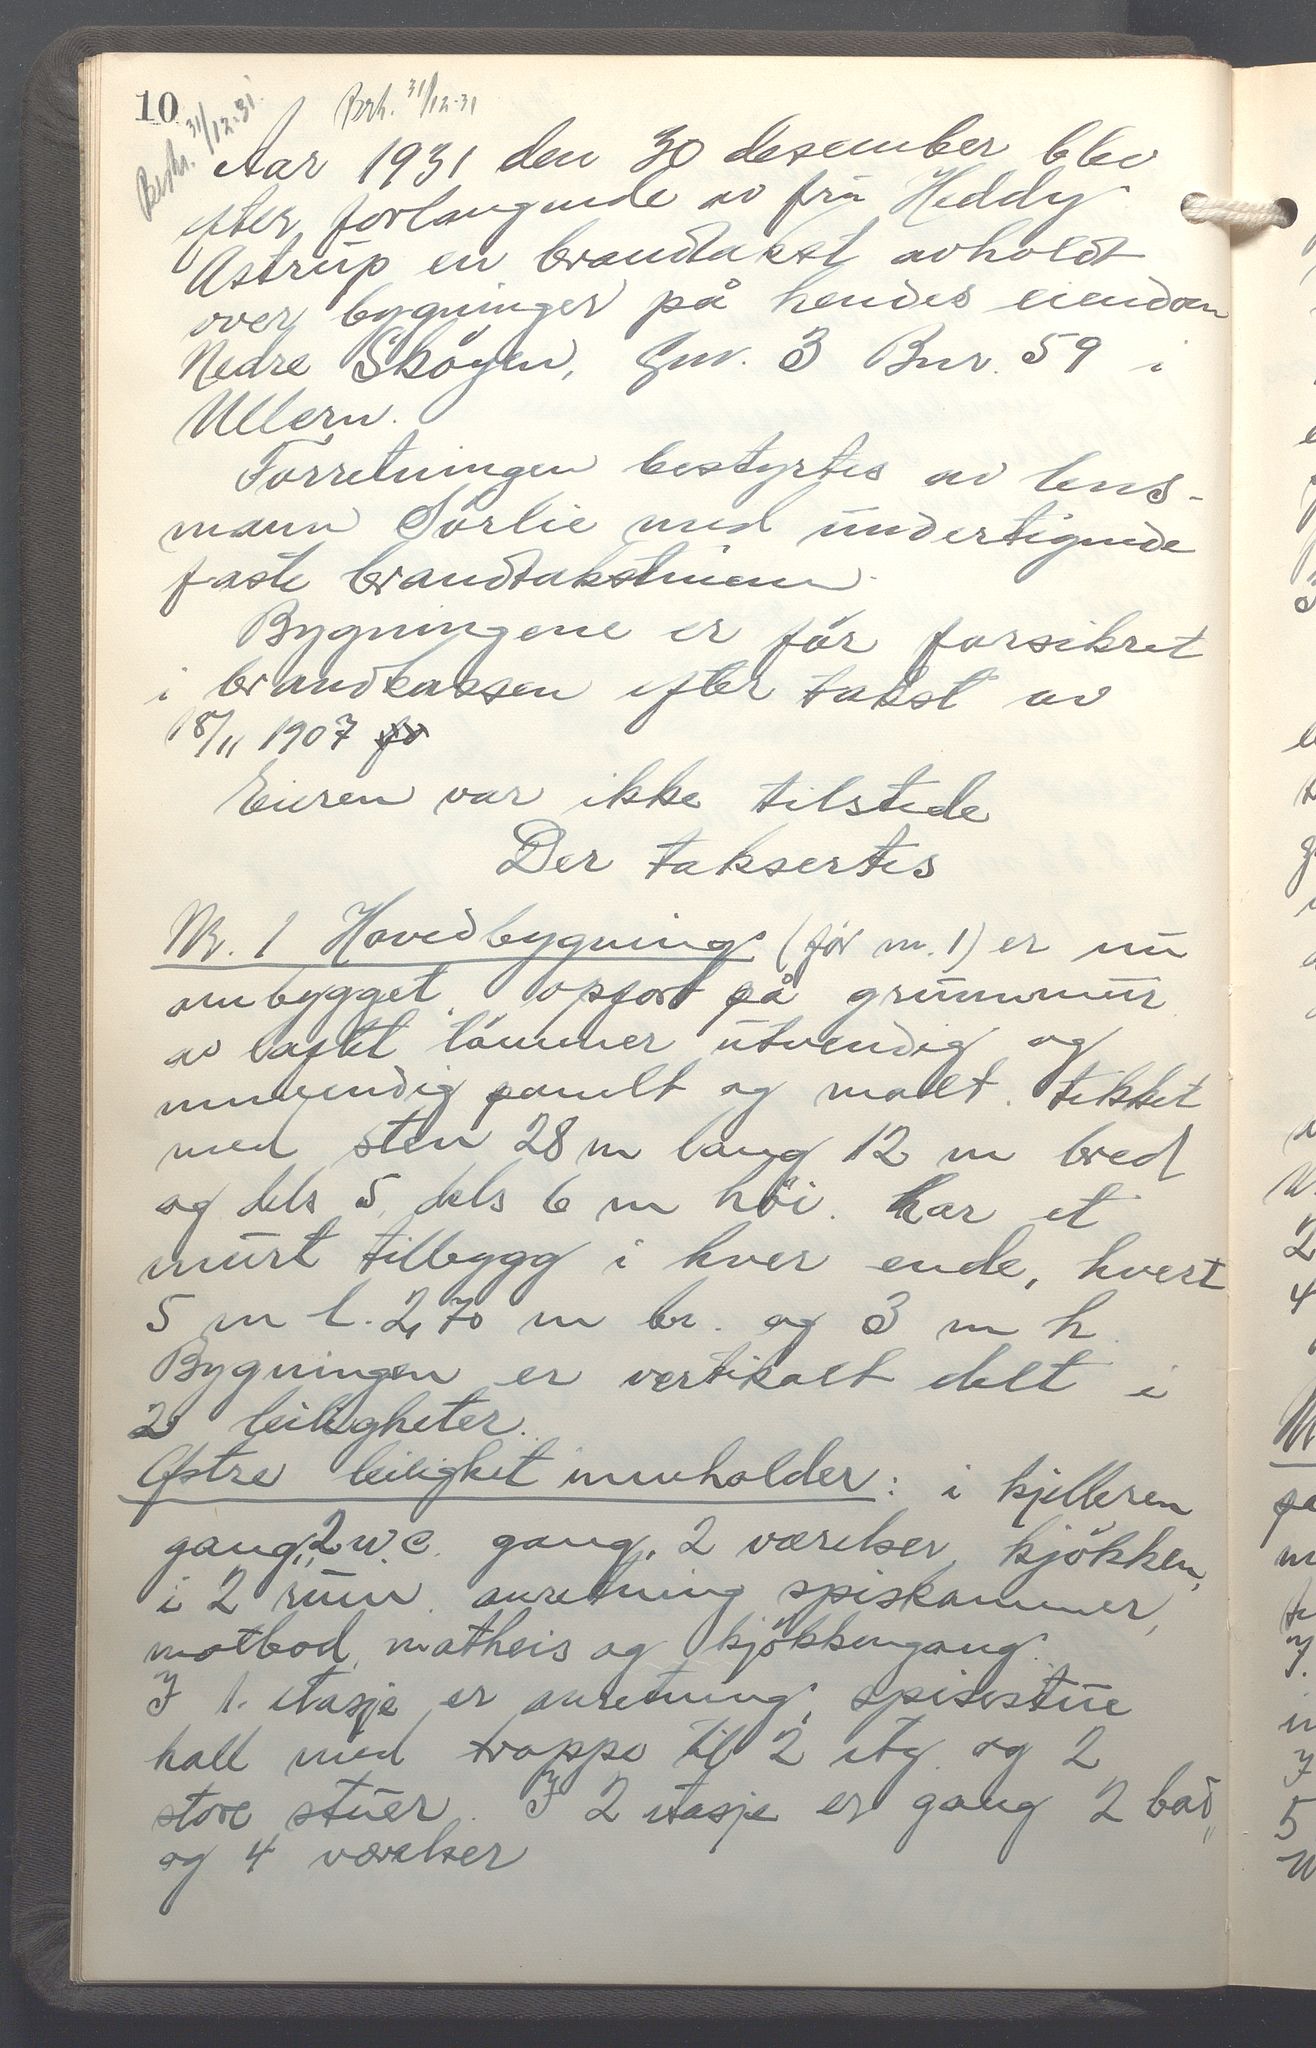 10
Beskr. 31/12-31.
Berh. 31/12-31
Aar 1931 den 30 desember blev
efter forlangende av fru Heddy
Astrup en brandtakst avholdt
over bygninger på hendes eiendom
Nedre Skøyen, Gnr. 3 Bnr. 59 i
Ullern.
Forretningen bestyrtes av lens-
mann Sørlie med undertegnede
faste brandtakstmenn.
Bygningene er før forsikret
i brandkassen efter takst av
18/11 1907
Eieren var ikke tilstede
Der taksertes
Nr. 1 Hovedbygning (før nr. 1) er nu
ombygget, opfort på grunnmur
av laftet tømmer utvendig og
innvendig panelt og malt. tekket
med sten 28 m lang 12 m bred
og dels 5, dels 6 m høi. Har et
murt tilbygg i hver ende, hvert
5 m l. 2,70 m br. og 3 m h.
Bygningen er vertikalt delt i
2 leiligheter.
Østre leilighet innholder: i kjelleren
gang, 2 wc. gang, 2 værelser, kjøkken,
i 2 rum. anretning spiskammer,
matbod, matheis og kjøkkengang.
I 1. etasje er anretning, spisestue
hall med trappe til 2 etg. og 2
store stuer. I 2 etasje er gang 2 bad,
og 4 værelser